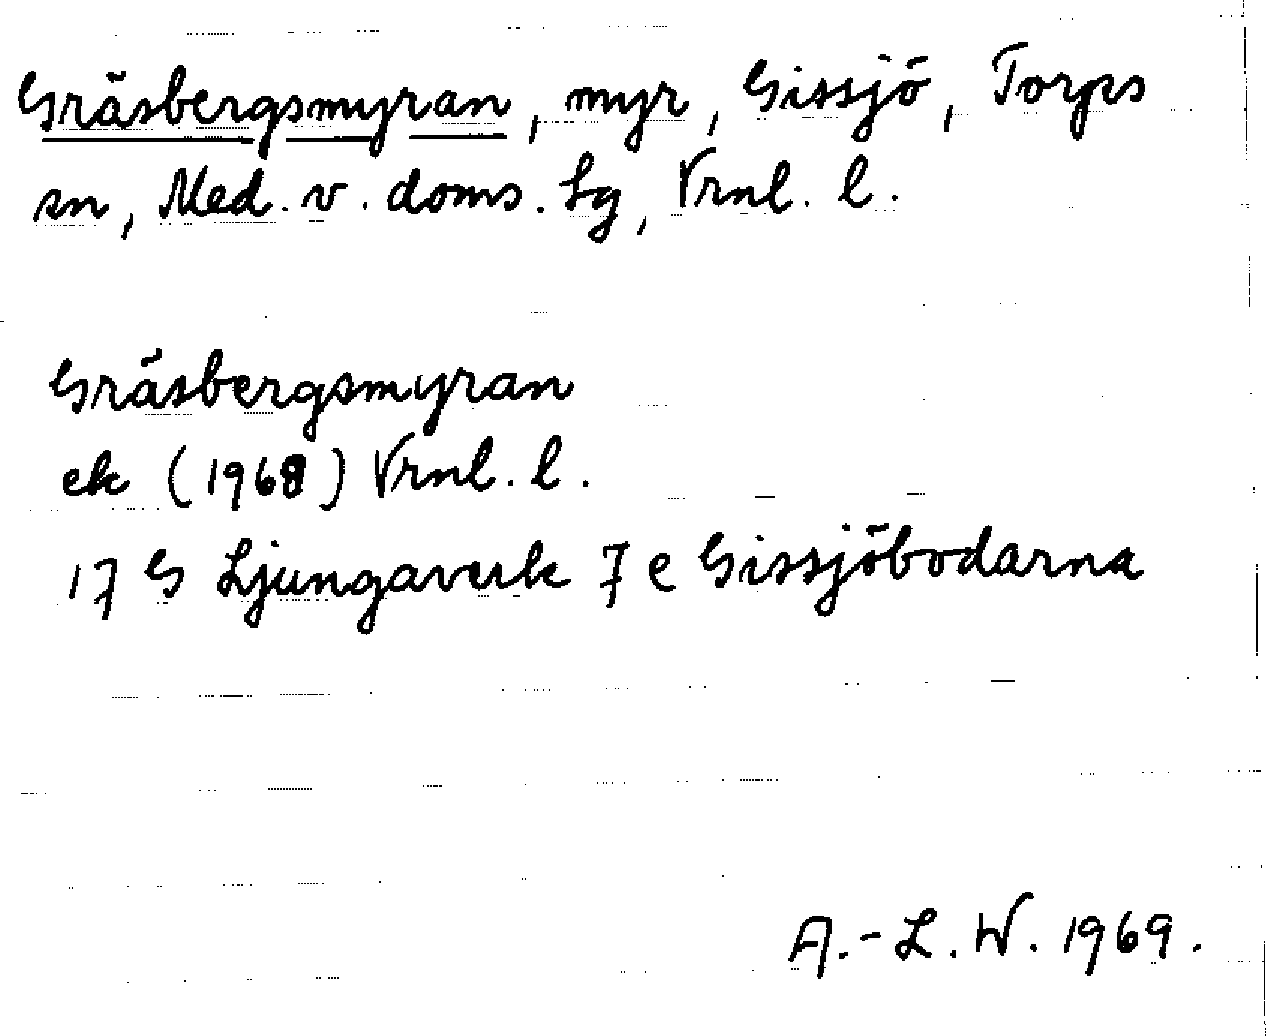 Gräsbergsmyran, myr, Gissjö, Torps
sn, Med. v. doms. Lg, Vrnl. l.
Gräsbergsmyran
ek (1968) Vrnl. l.
17 G Ljungaverk 7 e Gissjöbodarna
A.-L. W. 1969.